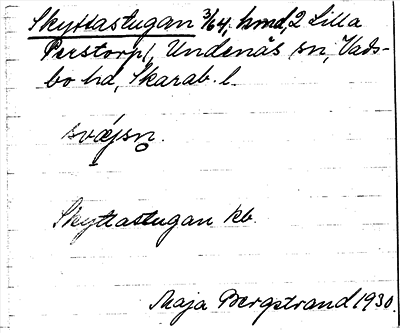 Skyttastugan 3/64, hmd, 2 Lilla
Perstorp/, Undenäs sn, Vads-
bo hd, Skarab. l.
Skyttastugan kb.
Maja Bergstrand 1930.